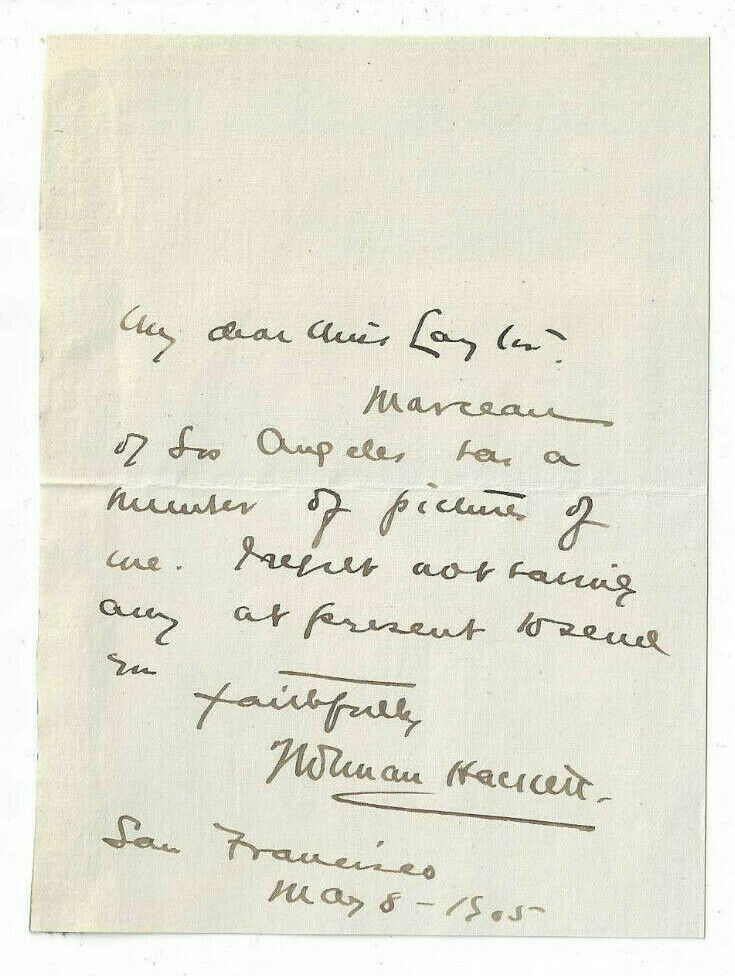 My dear Miss
Marceau
of Los Angeles has a
number of pictures of
me. I regret not having
any at present to send
you
Faithfully
Norman Hackett.
San Francisco
May 8 - 1905